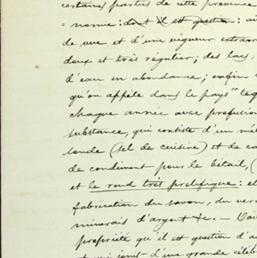 certaines parties de cette province
nomie: dont il est question: ai
de vue et d'une vigueur extraor
doux et très régulier; des lacs,
d'eau en abondance; enfin
qu'on appèle dans le pays "leg
chaque année avec profusion
substance, qui consiste d'un mél
(sel de cuisine) et de ca
de condiment pour le bétail, (
et le rend très prolifique: et
fabrication du savon, du ver
minerais d'argent &c. —
propriété qu'il est question d'a
d'une grande célèb